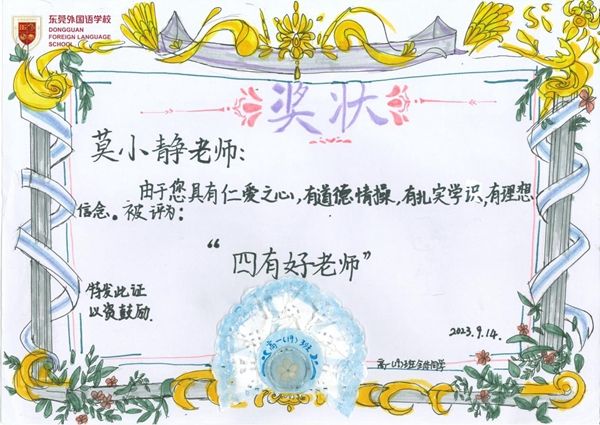 东莞外国语学校
DONGGUAN
FOREIGN LANGUAGE
SCHOOL
奖状
莫小静老师:
由于您具有仁爱之心,有道德情操,有扎实学识,有理想
信念。被评为:
“四有好老师”
特发此证
以资鼓励.
高一(19)班
2023.9.14.
高一(19)班全体同学